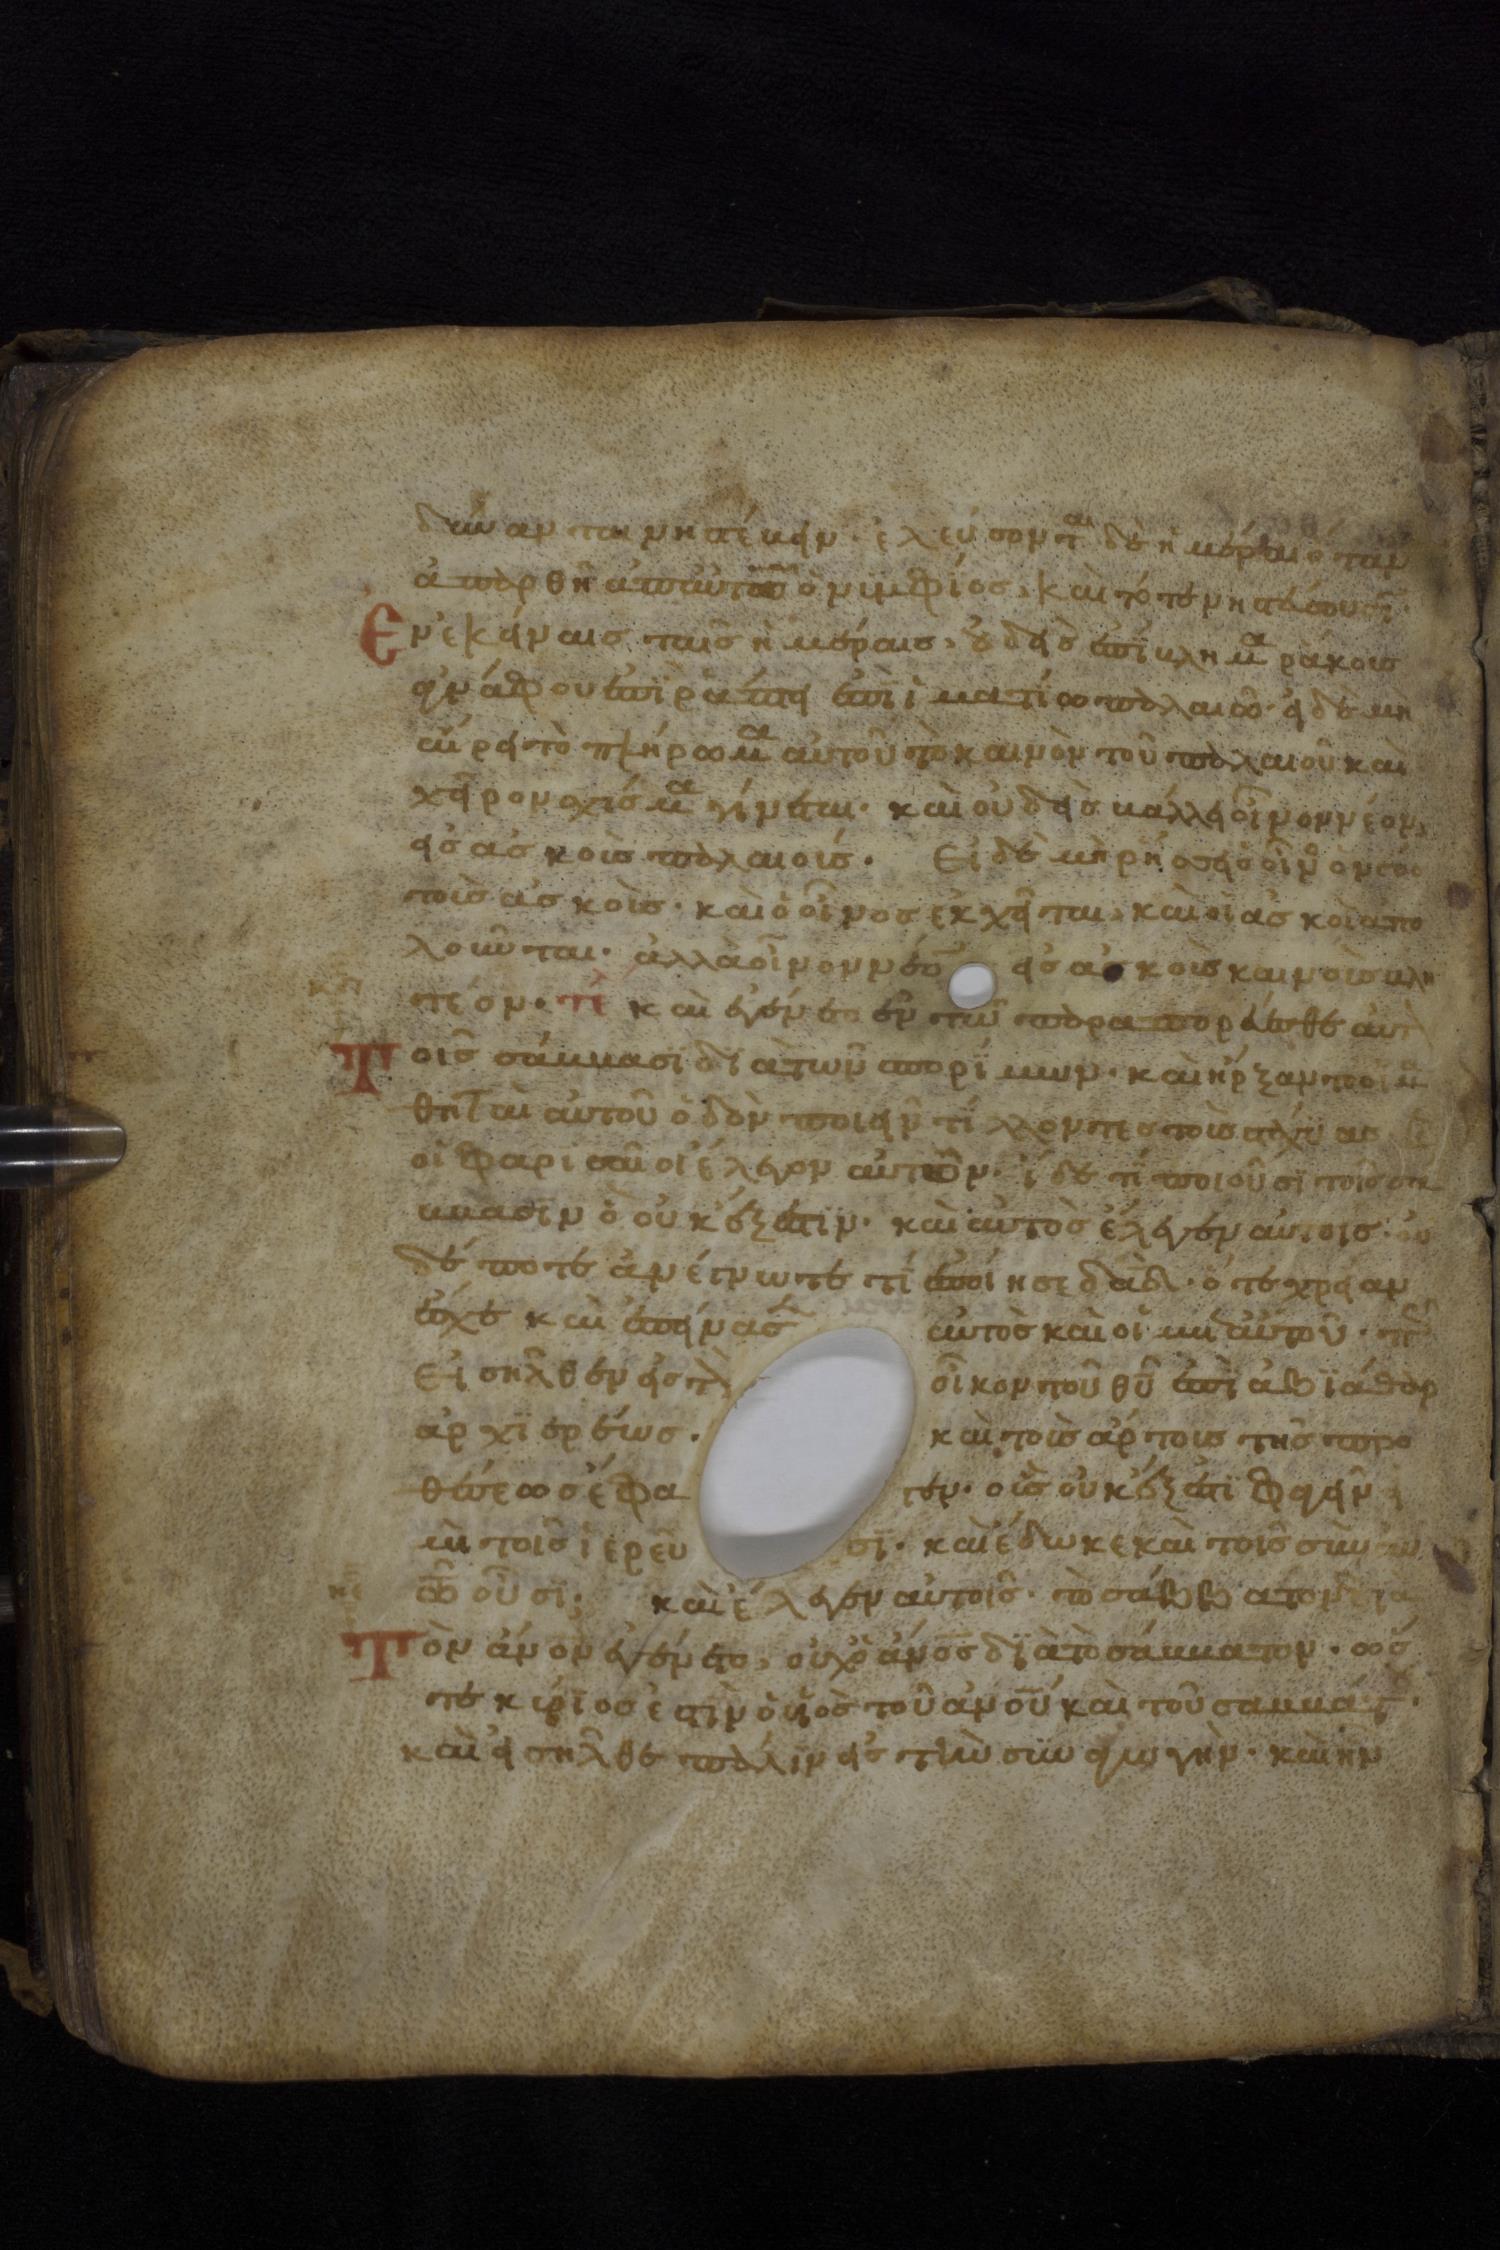 δύνανται νηστεύειν· ἐλεύσονται δὲ ἡμέραι ὅταν
ἀπαρθῆ ἀπ αὐτῶν ὁ νυμφίος, καὶ τότε νηστεύσουσιν·
Ἐν ἐκείναις ταῖς ἡμέραις, οὐδεὶς ἐπίβλημα ράκους
ἀγνάφου ἐπιρράπτει ἐπὶ ἱματίω παλαιῶ· εἰ δὲ μὴ
αἴρει τὸ πλήρωμα αὐτοῦ τὸ καινὸν τοῦ παλαιοῦ καὶ
χεῖρον σχίσμα γίνεται· καὶ οὐδεὶς βάλλει οἶνον νέον,
εἰς ἀσκοὺς παλαιούς· Εἰ δὲ μὴ ρήσσει ὁ οἶνος ὁ νέος
τοὺς ἀσκοὺς· καὶ ὁ οἶνος ἐκχεῖται, καὶ οἱ ἀσκοὶ ἀπο
λοῦνται· ἀλλὰ οἶνον νέον εἰς ἀσκοὺς καινοὺς βλη
τέον· τέ καὶ ἐγένετο ἐν τῶ παραπορεύεσθαι αὐτὸν
Τοῖς σάββασϊ δϊὰ τῶν σπορίμων· καὶ ἤρξαντο οἱ μα
θηταὶ αὐτοῦ ὁδὸν ποιεῖν τίλλοντες τοὺς στάχυας
οἱ φαρισαῖοι ἔλεγον αὐτῶ· ἴδε τί ποιοῦσϊ τοῖς σά
ββασϊν ὃ οὐκ ἔξεστϊν· καὶ αὐτὸς ἔλεγεν αὐτοῖς· οὐ
δέποτε ἀνέγνωτε τί ἐποίησε δαδ· ὅτε χρείαν
ἔσχε καὶ ἐπείνασεν αὐτὸς καὶ οἱ μετ αὐτοῦ· πῶς
Εἰσῆλθεν εἰς τὸν οἶκον τοῦ θυ ἐπὶ ἀβϊάθαρ
ἀρχϊερέως· καὶ τοὺς ἄρτους τῆς προ
θέσεως ἔφαγεν· οὓς οὐκ ἔξεστϊ φαγεῖν εἰ
μὴ τοῖς ἱερεῦσϊ· καὶ ἔδωκε καὶ τοῖς σὺν αὐ
τῶ οὖσϊ· καὶ ἔλεγεν αὐτοῖς· τὸ σάββατον διὰ
Τὸν ἄνον ἐγένετο, οὐχ ὁ ἄνος δϊὰ τὸ σάββατον· ὥσ
τε κύρϊός ἐστὶν ὁ υἱὸς τοῦ ἀνου καὶ τοῦ σαββάτου·
καὶ εἰσῆλθε πάλϊν εἰς τὴν συναγωγήν· καὶ ἦν